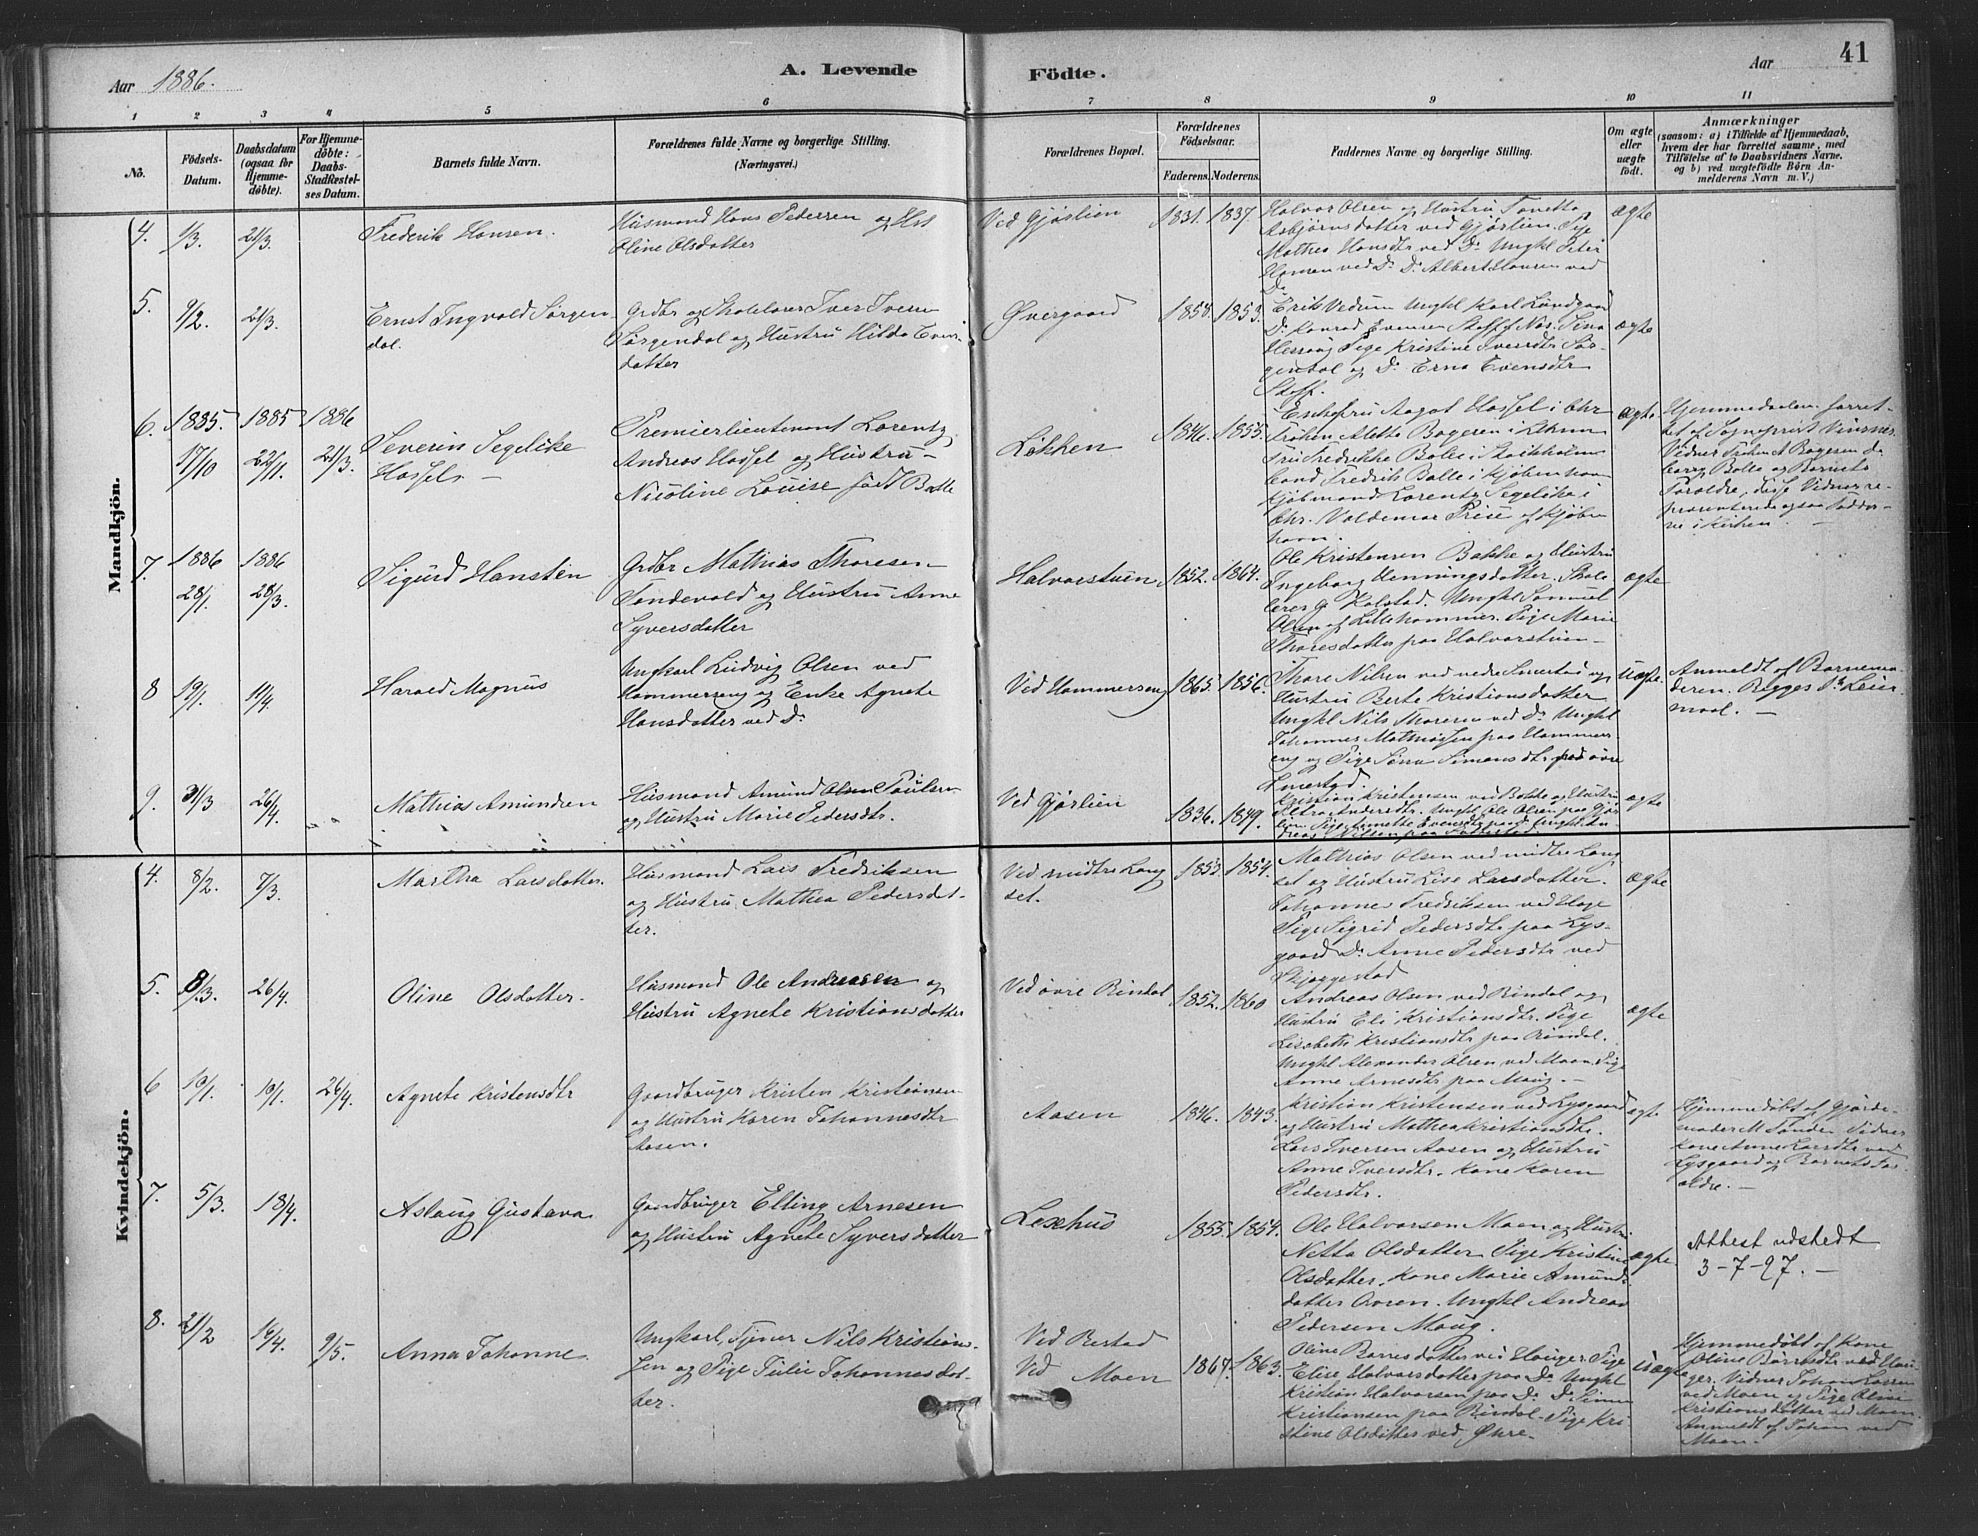 41
Aar 1886.
A. Levende
Födte.
Aar
1 2 3 4 5 6 7 8 9 10 11
No.
Födsels-
Datum.
Daabsdatum
(ogsaa for
Hjemme-
döbte).
For Hjemme-
döbte:
Daabs-
Stadfæstel-
ses Datum.
Barnets fulde Navn.
Forældrenes fulde Navne og borgerlige Stilling.
(Næringsvei.)
Forældrenes Bopæl.
Forældrenes
Födselsaar.
Faderens. Moderens.
Faddernes Navne og borgerlige Stilling.
Om ægte
eller
uægte
födt.
Anmærkninger
(saasom: a) i Tilfælde af Hjemmedaab,
hvem der har forrettet samme, med
Tilföielse af to Daabsvidners Navne,
og b) ved uægtefödte Börn An-
melderens Navn m. V.)
Mandkjön.
4. 1/3. 21/3. Frederik Hansen.
Husmand Hans Pedersen og Hst
Oline Olsdatter
Ved Gjøslien 1831. 1837.
Halvor Olsen og Hustru Tonetta
Asbjørnsdatter ved Gjøslien. Pige
Mathea Hansdtr ved Do Ungkl Peter
Hansen ved Do Do Albert Hansen ved
Do
ægte
5. 9/2. 21/3. Ernst Ingvald Sørgen-
dal.
Grdbr og Skolelærer Iver Iversen
Sørgendal og Hustru Hilda Evens-
datter
Øvergaard 1850. 1853.
Erik Vedum Ungkl Karl Lundgaard
Do Konrad Evensen Stoff
Pige Kristine Iversdtr Sør-
gendal og Do Erna Evensdtr
Stoff.
ægte
6. 1885. 17/10 1885 22/11. 1886 21/3.
Severin Segelcke
Hassel. —
Premierlieutenant Lorentz
Andreas Hassel og Hustru —
Nicoline Louise født Bolle
Løkken 1846. 1855.
Enkefru Aagot Hassel i Chr
Frøken Aletta Bøgeren i
Fru Fredrikke Bolle i Stockholm
Cand Fredrik Bolle i Kjøbenhavn
Kjøbmand Lorentz Segelcke i
Chr. Valdemar Price af Kjøben
havn.
ægte
Hjemmedaaben forret-
tet af Sogneprest Vinsnes
Vidner Frøken A Bøgeren
Bolle og Barnets
Forældre, disse Vidner re-
præsenterede ogsaa Fadder-
ne i Kirken. —
7. 1886 28/1. 1886 28/3.
Sigurd Hanstén
Grdbr Mathias Thoresen
Tandevold og Hustru Anne
Syversdatter
Halvorstuen 1852. 1864.
Ole Kristensen Bakke og Hustru
Ingeborg Henningsdatter. Skole
lærer G Kolstad. Ungkl Samuel
Olsen af Lillehammer. Pige Marie
Thoresdatter paa Halvorstuen —
ægte
8 19/1. 11/4. Harald Magnus
Ungkarl Ludvig Olsen ved
Hammerseng og Enke Agnete
Hansdatter ved Do
Ved Hammerseng 1865. 1856.
Thore Nilsen ved nedre Smestad og
Hustru Berte Kristiansdatter
Ungkl Nils Thoresen ved Do Ungkl
Johannes Mathiassen paa Hammers
eng og Pige Simensdtr paa øvre
Smestad.
Uægte.
Anmeldt af Barnemo-
deren. Begges 1ste Leier
maal. —
9. 31/3 26/4. Mathias Amundsen
Husmand Amund Olsen Paulsen
og Hustru Marie Pedersdtr.
Ved Gjøslien 1836. 1849.
Kristian Kristensen ved Bakke og Hustru
Petra Andersdtr. Ungkl Ole Olsen paa Gjøs
lien. Pige Annette Evensdtr
ægte
Kvindekjön.
4. 8/2. 7/3. Martha Larsdatter.
Husmand Lars Fredriksen
og Hustru Mathea Pedersdat-
ter.
Ved midtre Lang
set. 1853. 1854.
Mathias Olsen ved midtre Lang
set og Hustru Lise Larsdatter.
Johannes Fredriksen ved Hage
Pige Sigrid Pedersdtr paa Lys-
gaard Do Anne Pedersdtr ved
Skjæggestad
ægte
5. 8/3. 26/4. Oline Olsdatter.
Husmand Ole Andreassen og
Hustru Agnete Kristiansdatter
Ved øvre Rindal 1852. 1860
Andreas Olsen ved Rindal og
Hustru Eli Kristiansdtr. Pige
Lisabeth Kristiansdtr paa Rindal.
Ungkl Alexander Olsen ved Moen. Pige
Anne Arnesdtr paa Maug. —
ægte
6 19/1. 19/1. 26/4. Agnete Kristensdtr
Gaardbruger Kristen Kristiansen
og Hustru Karen Johannesdtr
Aasen.
Aasen 1846. 1843.
Kristian Kristensen ved Lysgaard
og Hustru Mathea Kristiansdtr.
Lars Iversen Aasen og Hustru
Anne Iversdtr. Kone Karen
Pedersdtr.
ægte
Hjemmedøbt af Gjorde-
moder M Sande. Vidner
Kone Anne Larsdtr ved
Lysgaard og Barnets For-
ældre. —
7. 5/3. 18/4. Aslaug Gustava
Gaardbruger Elling Arnesen
og Hustru Agnete Syversdatter
Lexehus 1855. 1854.
Ole Halvorsen Moen og Hustru
Netta Olsdatter. Pige Kristine
Olsdatter. Kone Marie Amunds
datter Ovren. Ungkl Andreas
Pedersen Maug.
ægte.
Attest udstedt
3-7-97. —
8. 21/2 16/4. 9/5. Anna Johanne.
Ungkarl, Tjener Nils Kristian-
sen og Pige Julie Johannesdat-
ter.
Ved Bestad
Ved Moen 1864. 1863.
Oline Baresdatter ved Hauger. Pige
Elise Halvorsdatter paa Do Ungkl
Kristian Halvorsen paa Do Do Simen
Kristiansen paa Rindal. Pige Kri
stine Olsdatter ved Øvre.
uægte
Hjemmedøbt af Kone
Oline Baresdtr ved Hau-
ger. Vidner Johan Larsen
ved Moen og Pige Oline
Kristiansdatter ved Moen.
Anmeldt af Johan ved
Moen.